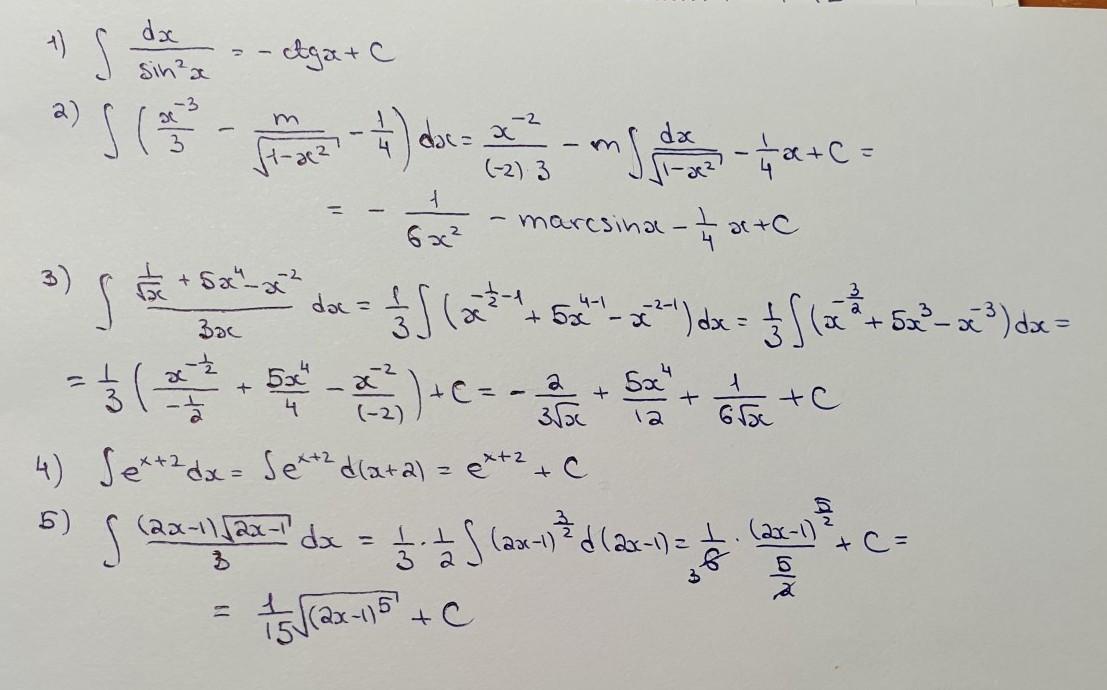 1) ∫ dx/sin²x = - ctgx + C
2) ∫ (x⁻³/3 - m/√(1-x²) - 1/4) dx = x⁻²/((-2)·3) - m ∫ dx/√(1-x²) - 1/4 x + C =
= - 1/(6x²) - m arcsinx - 1/4 x + C
3) ∫ (1/√x + 5x⁴ - x⁻²)/(3x) dx = 1/3 ∫ (x^(-1/2-1) + 5x^(4-1) - x^(-2-1)) dx = 1/3 ∫ (x^(-3/2) + 5x³ - x⁻³) dx =
= 1/3 (x^(-1/2)/(-1/2) + 5x⁴/4 - x⁻²/(-2)) + C = - 2/(3√x) + 5x⁴/12 + 1/(6√x) + C
4) ∫ e^(x+2) dx = ∫ e^(x+2) d(x+2) = e^(x+2) + C
5) ∫ ((2x-1)√(2x-1))/3 dx = 1/3 · 1/2 ∫ (2x-1)^(3/2) d(2x-1) = 1/6 3 · (2x-1)^(5/2)/(5/2) + C =
= 1/15 √((2x-1)⁵) + C